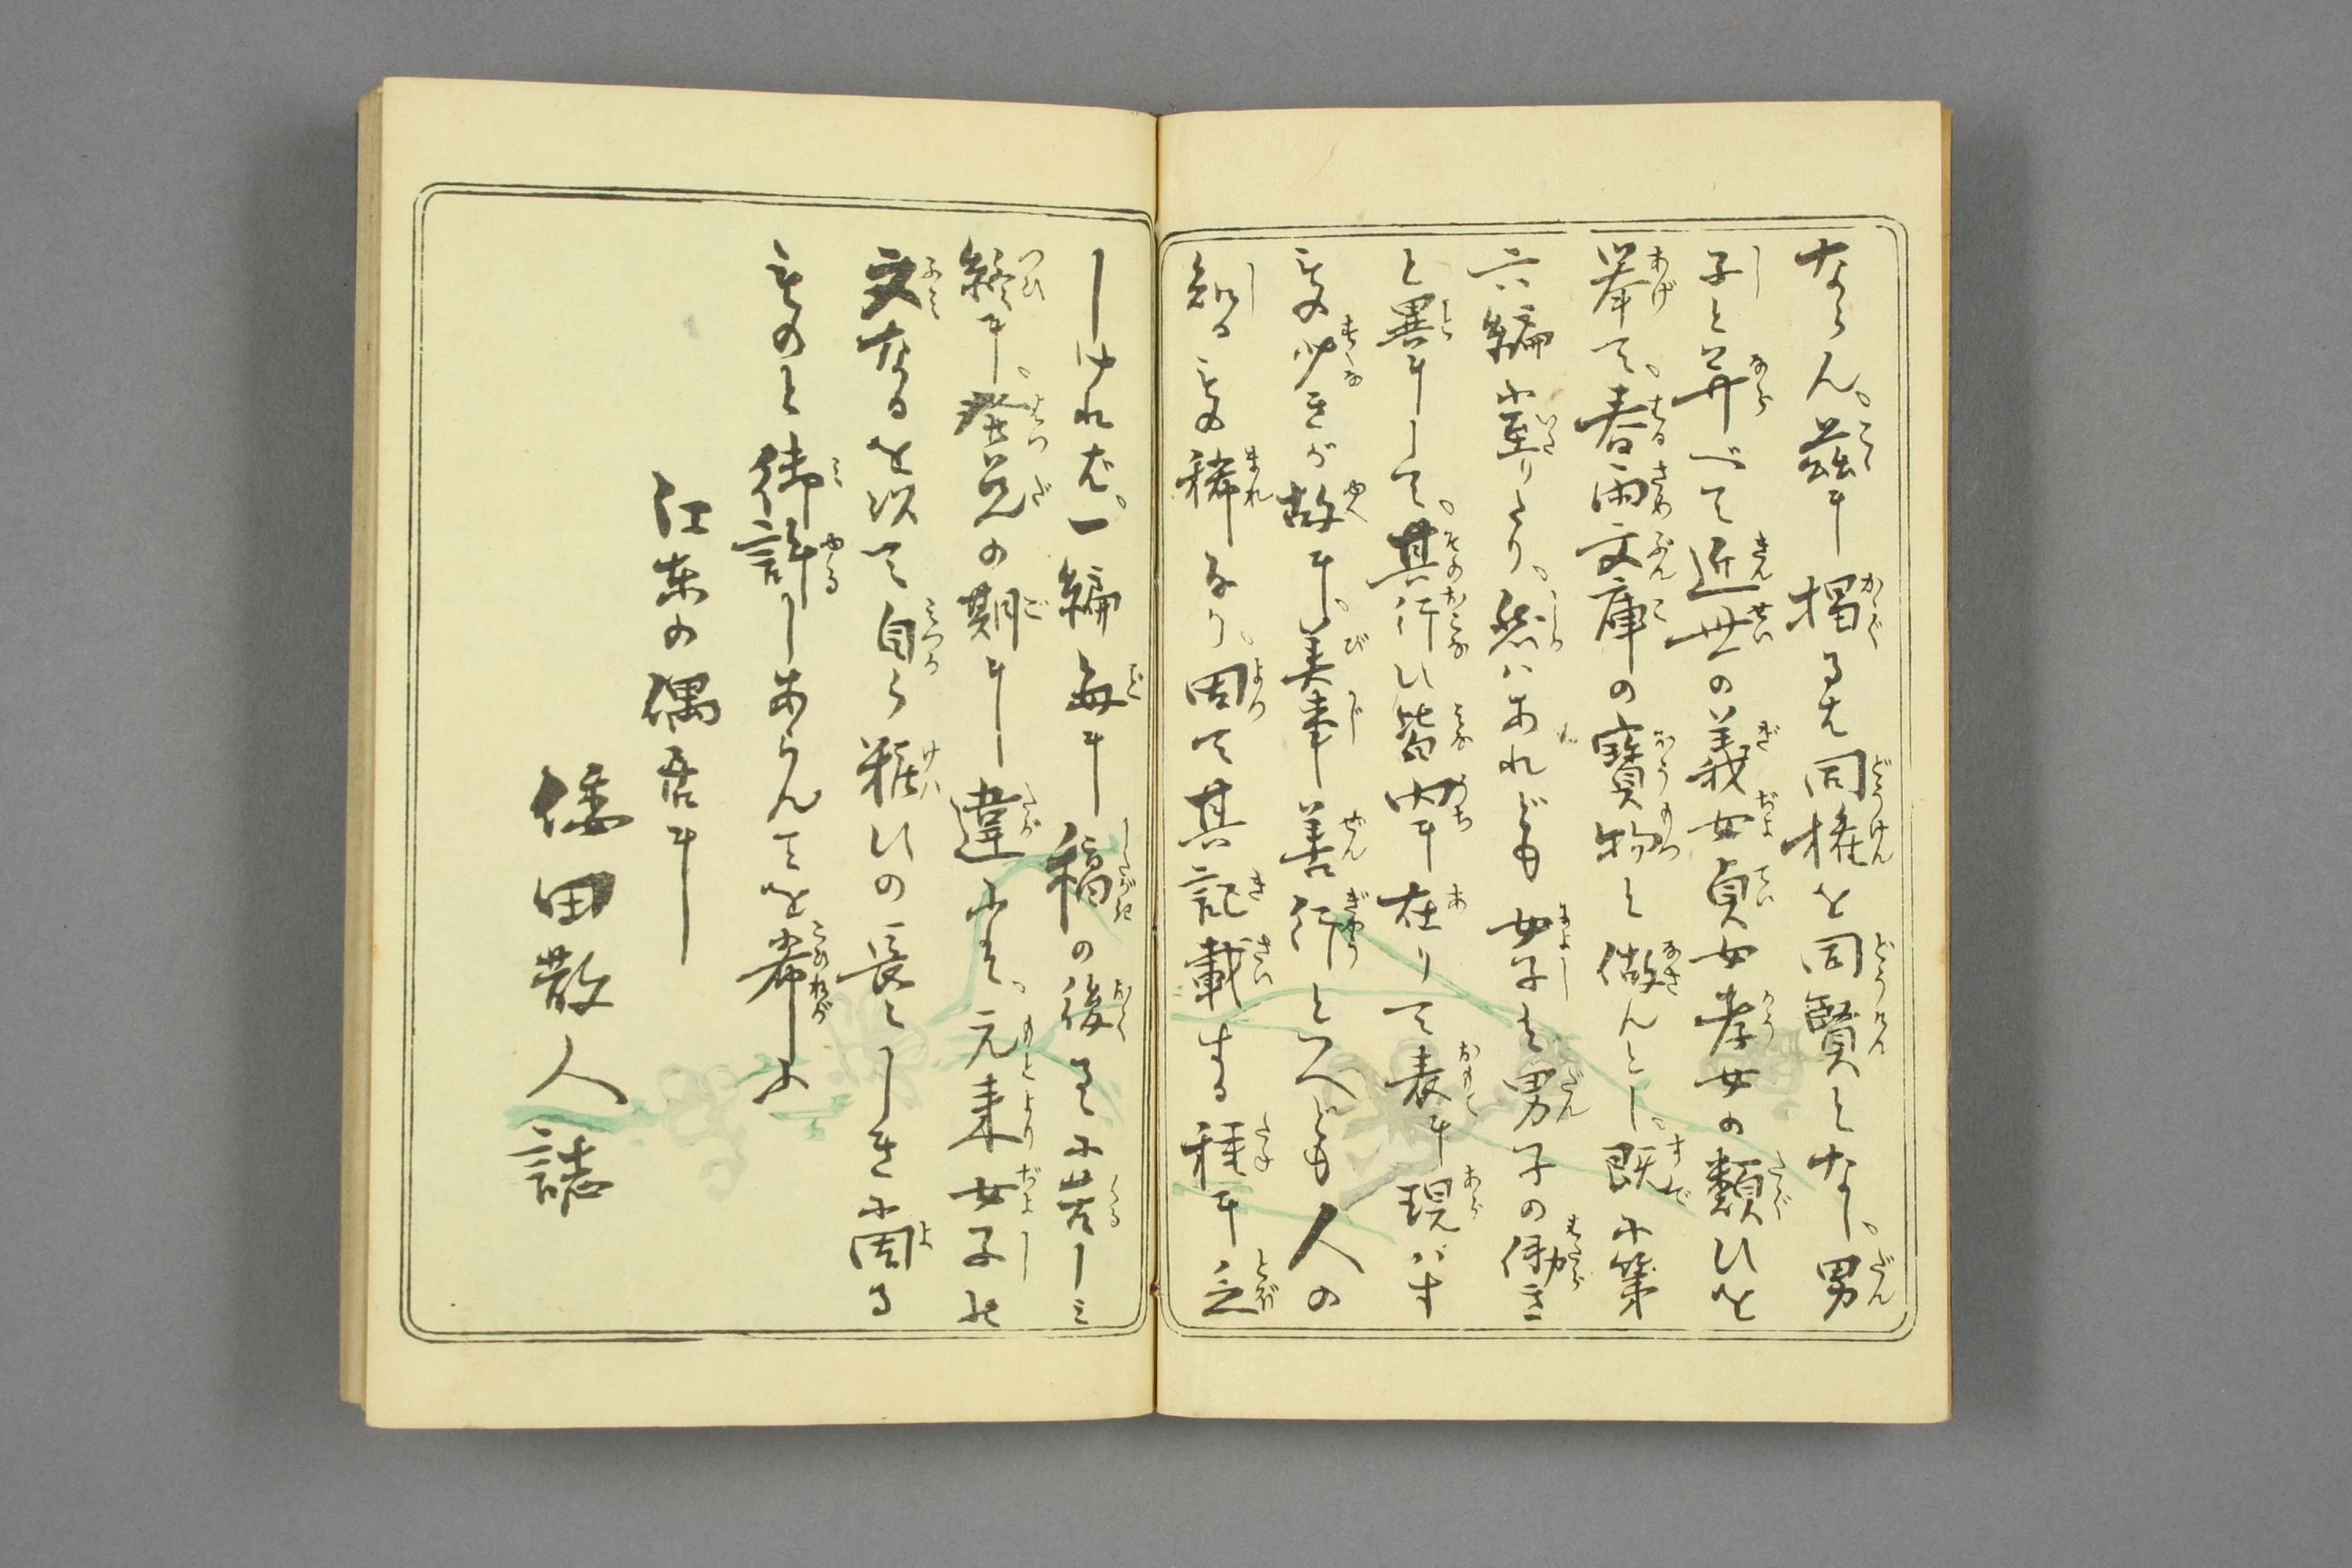 ならん。茲に掲るは同権を同賢となし。男
子と并べて近世の義女貞女孝女の類ひを
挙て。春雨文庫の宝物と做んとし。既に第
六編に至りたり。然はあれども女子は男子の働き
と異にして。其行ひ皆内に在りて表に現はす
事少きが故に。美事善行といへども人の
知る事稀なり。因て其記載する種に乏
しければ。一編毎に稿の後るゝに苦しみ
終に。発兌の期に違ふは。元来女子の
文なるを以て自ら粧ひの長々しきに因る
ものと御許しあらんことを希ふ
江東の偶居に
倭田散人誌